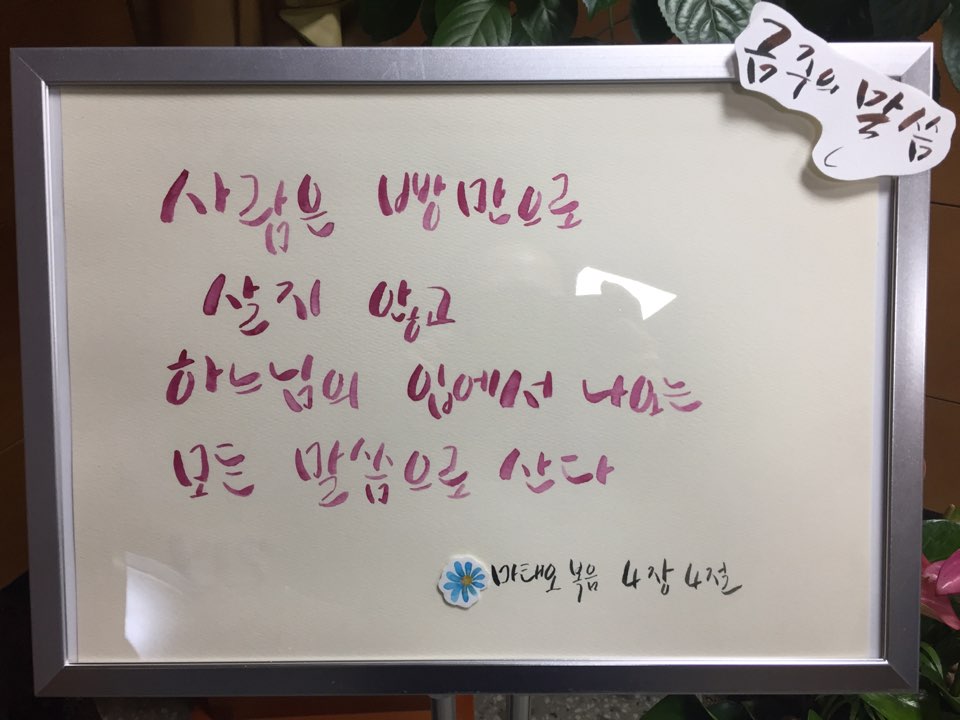 금주의 말씀
사람은 빵만으로
살지 않고
하느님의 입에서 나오는
모든 말씀으로 산다
마태오복음 4장 4절